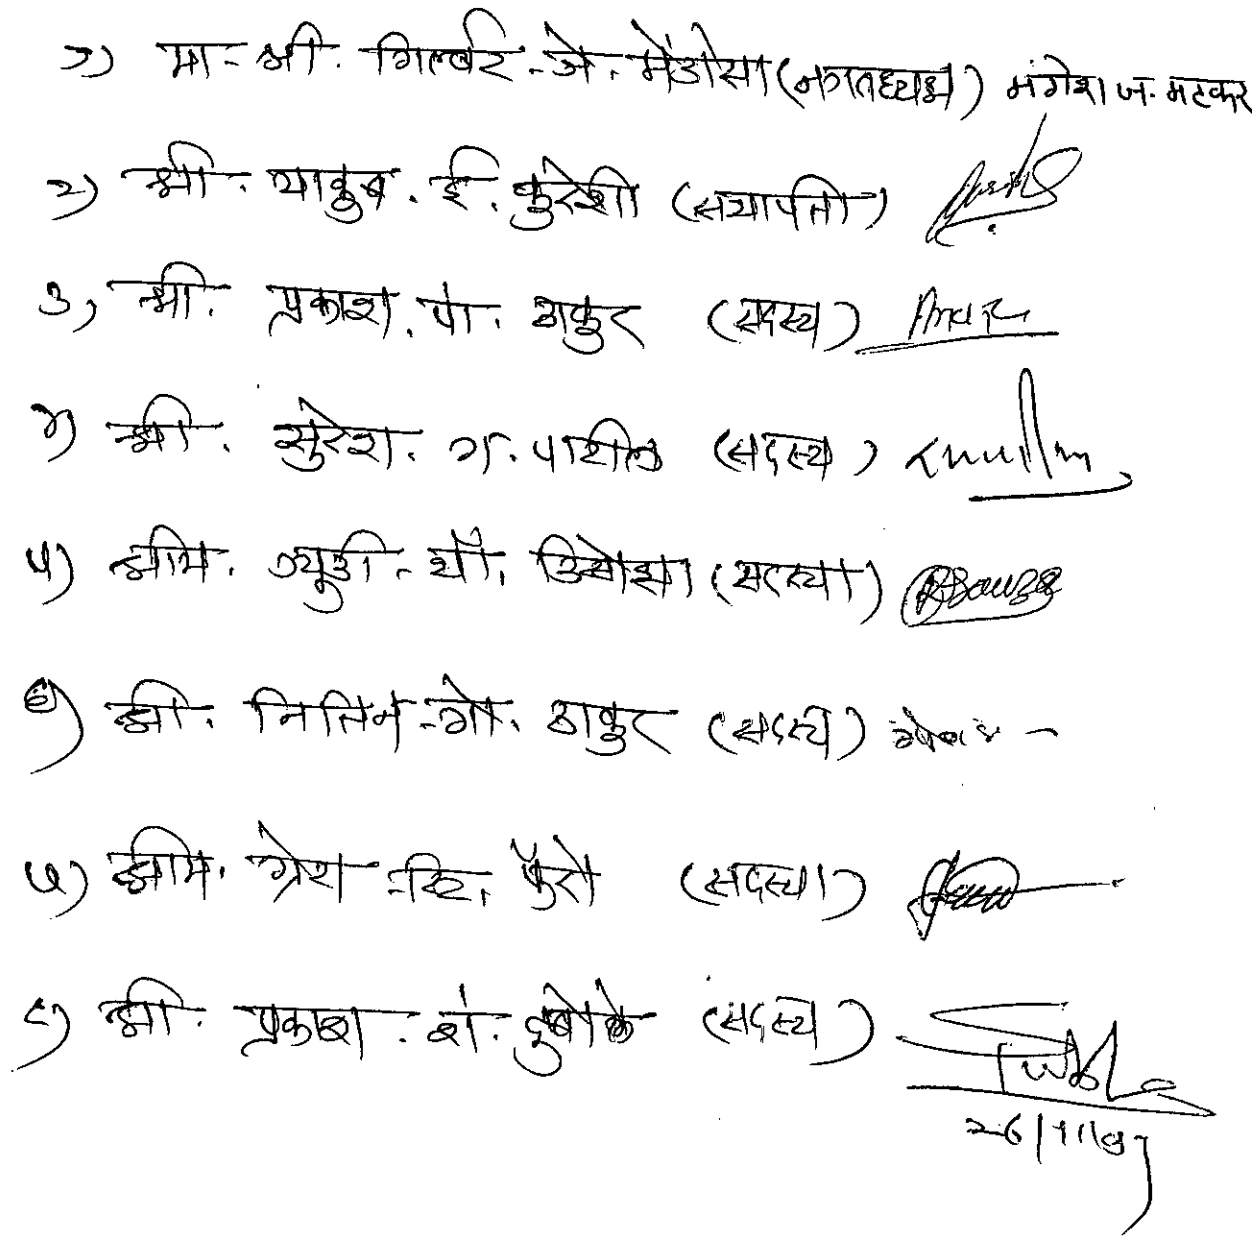 १) मा. श्री. गिल्बर्ट. जे. मेंडोसा (नगराध्यक्ष) मंगेश ज. मटकर
२) श्री. याकुब. ई. कुरेशी (सभापती)
३) श्री. प्रकाश. पां. ठाकुर (सदस्य)
४) श्री. सुरेश. ग. पाटील (सदस्य)
५) श्रीम. ज्युडी. थॉ. डिसोझा (सदस्या) Dsouza
६) श्री. नितिन. गो. ठाकुर (सदस्य)
७) श्रीम. ग्रेस. पॅरो (सदस्या)
८) श्री. प्रकाश. शं. दुबोले (सदस्य)
26/11/97